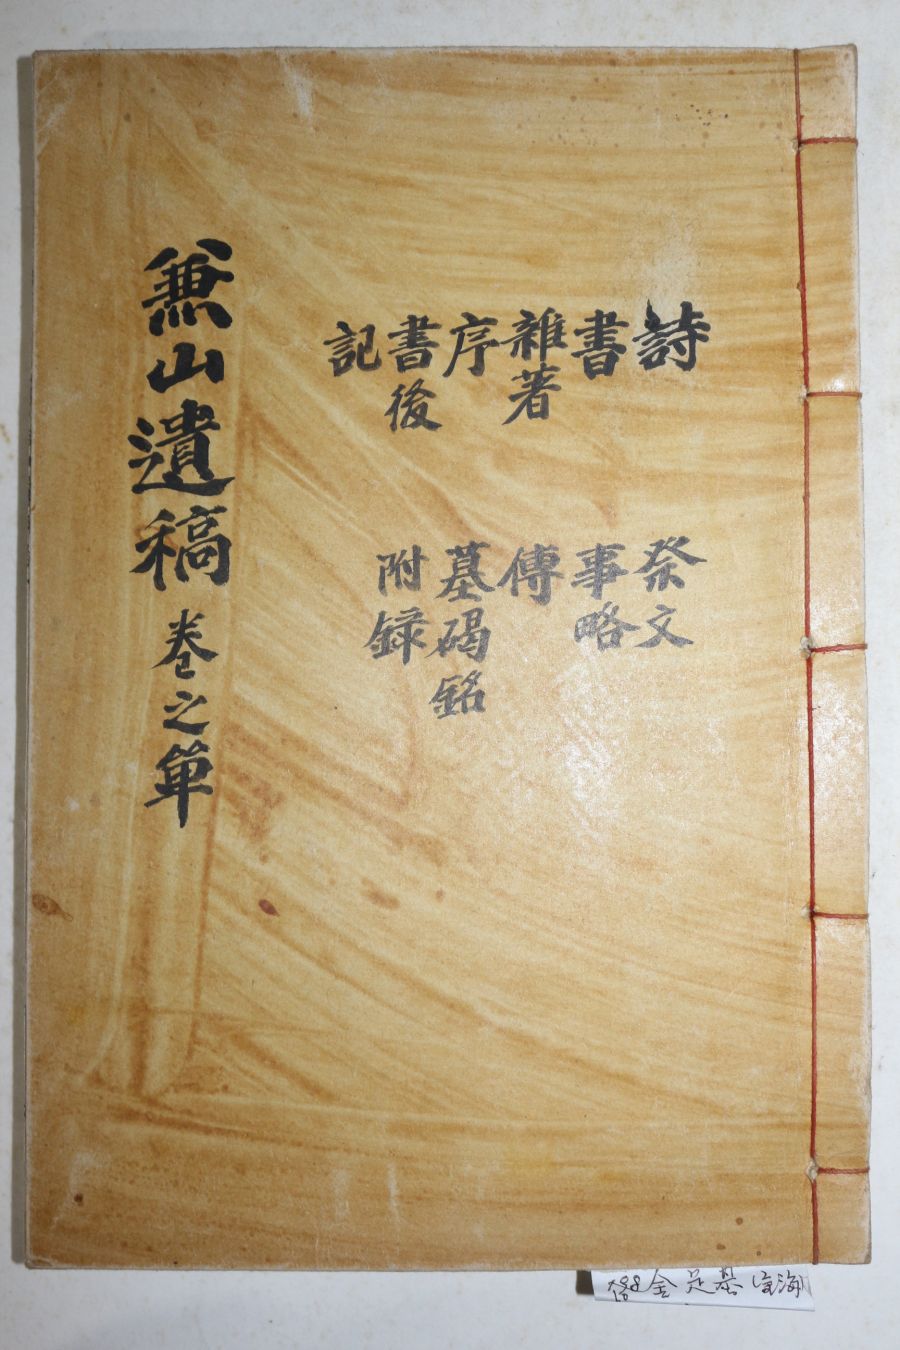 詩
書
雜著
序
書後
記
祭文
事略
傳
墓碣銘
附錄
兼山遺稿 卷之單
金 基